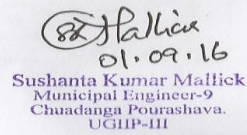 Mallick
01.09.16
Sushanta Kumar Mallick
Municipal Engineer-9
Chuadanga Pourashava.
UGIIP-III